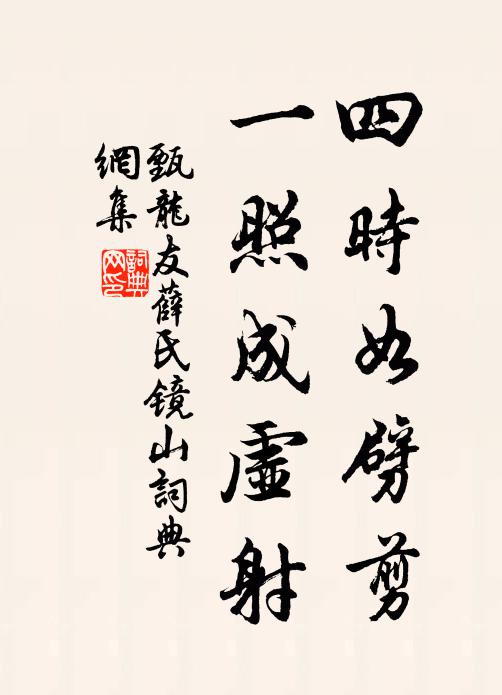 四時如劈剪
一照成虛射
甄龍友薛氏鏡山詞典
網集
詞典
网印